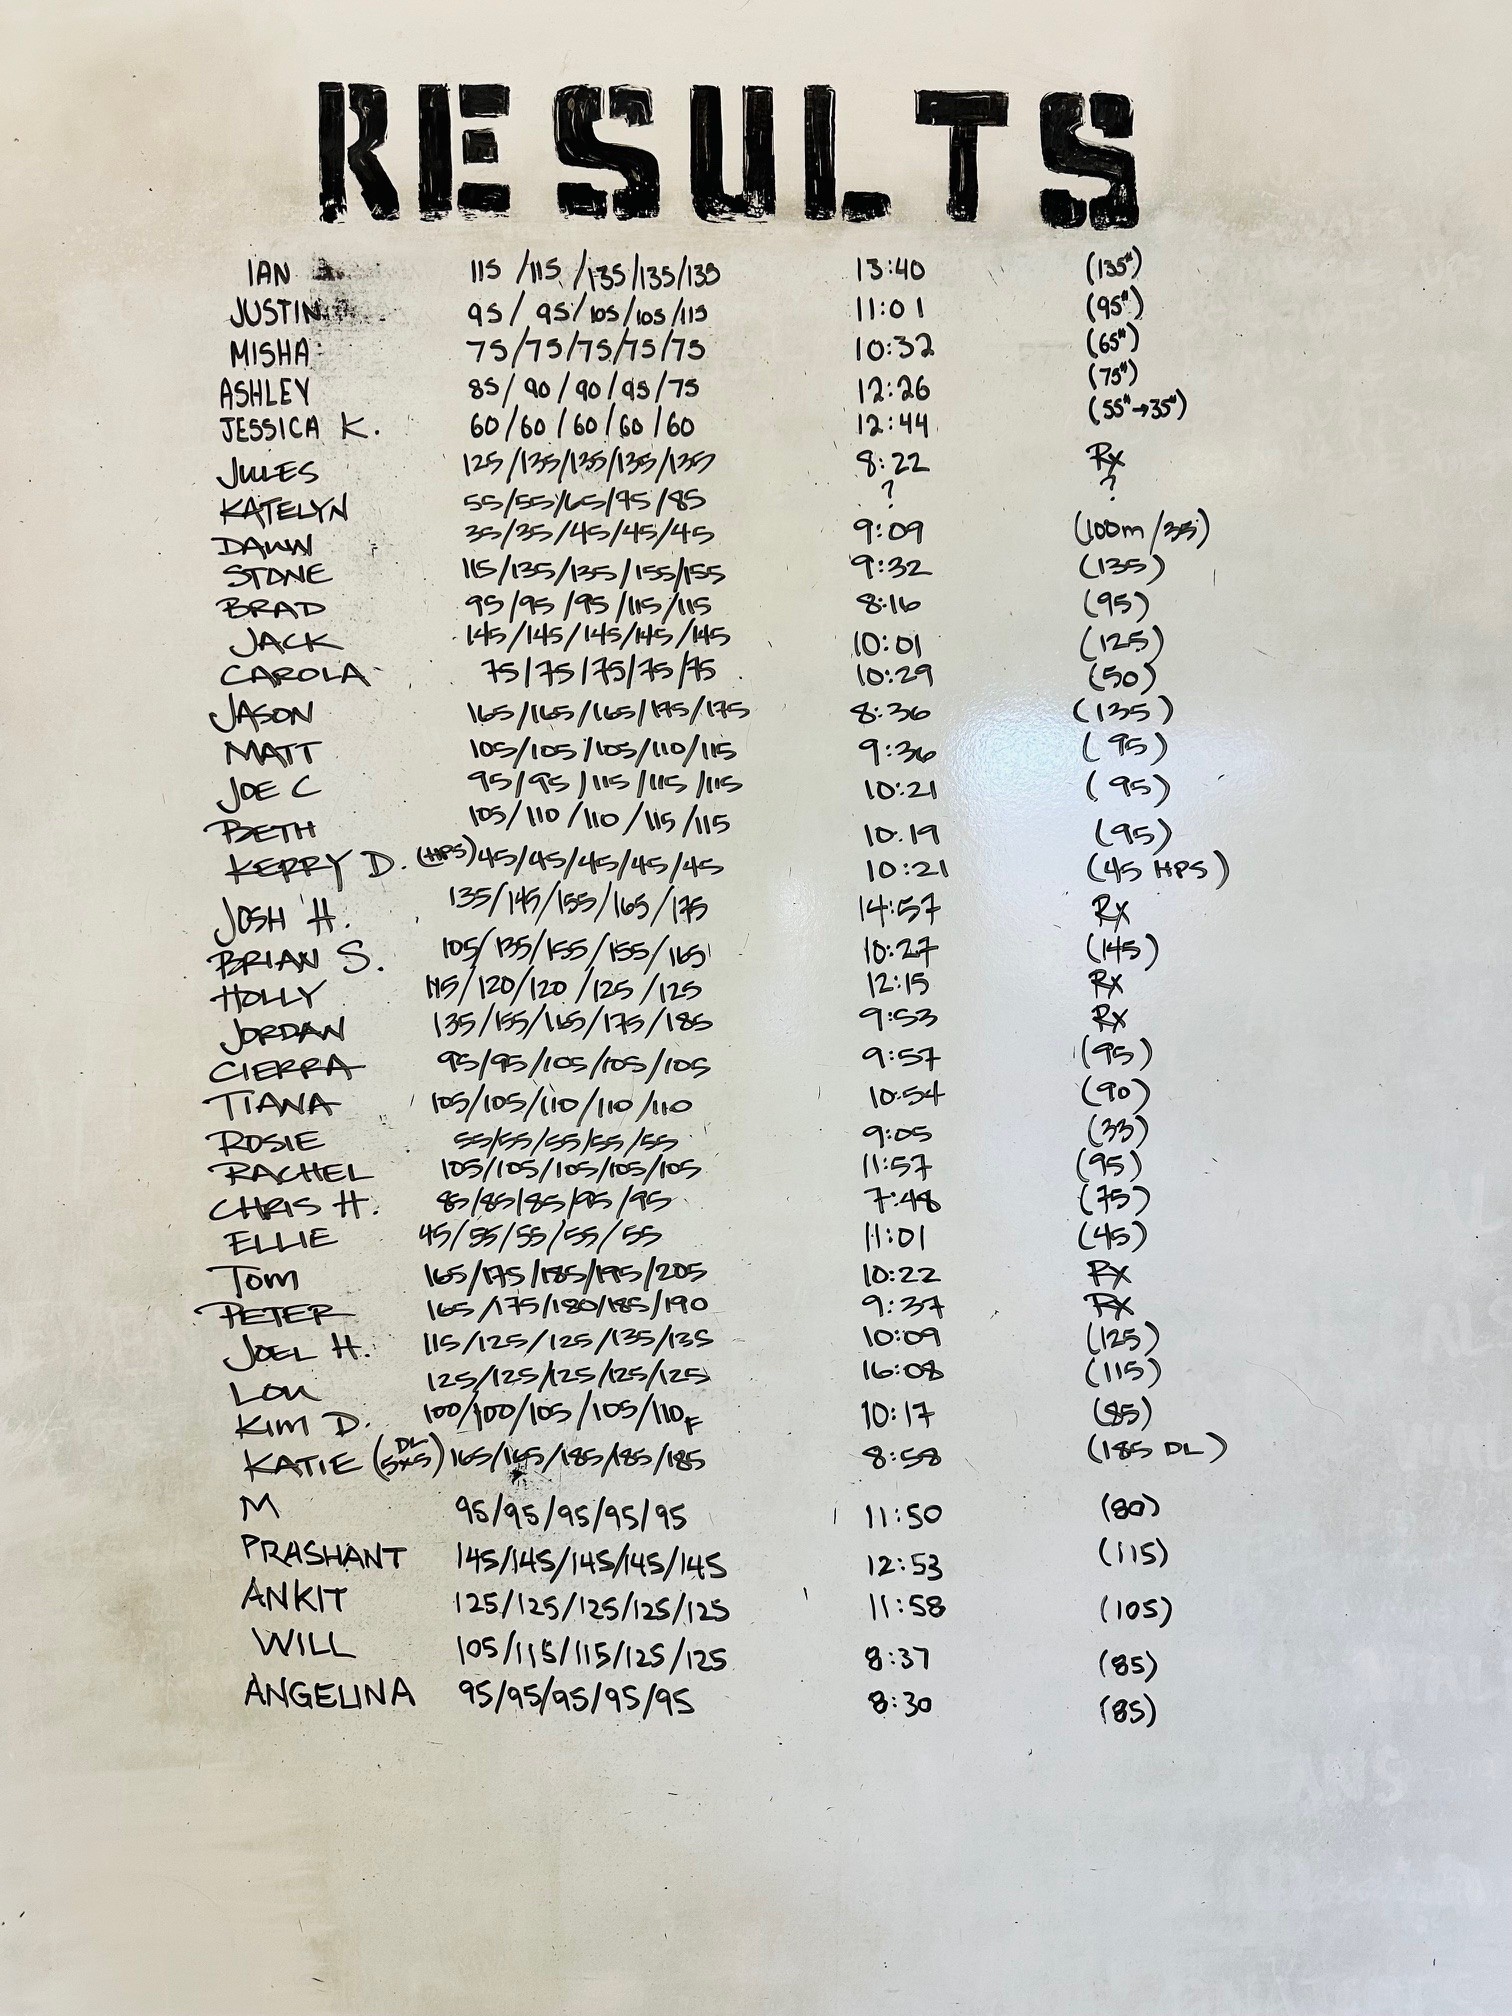 RESULTS
IAN 115 /115 /135/135/135 13:40 (135#)
JUSTIN 95/ 95/105/105/115 11:01 (95#)
MISHA 75/75/75/75/75 10:32 (65#)
ASHLEY 85/ 90/90/95/75 12:26 (75#)
JESSICA K. 60/60/60/60/60 12:44 (55#→35#)
JULES 125/135/135/135/135 8:22 Rx
KATELYN 55/55/65/75/85 ? ?
DAWN 35/35/45/45/45 9:09 (100m/35)
STONE 115/135/135/155/155 9:32 (135)
BRAD 95/95/95/115/115 8:16 (95)
JACK 145/145/145/145/145 10:01 (125)
CAROLA 75/75/75/75/75 10:29 (50)
JASON 165/165/165/175/175 8:36 (135)
MATT 105/105/105/110/115 9:36 (95)
JOE C 95/95/115/115/115 10:21 (95)
BETH 105/110/110/115/115 10:19 (95)
KERRY D. (HPS) 45/45/45/45/45 10:21 (45 HPS)
JOSH H. 135/145/155/165/175 14:57 Rx
BRIAN S. 105/135/155/155/165 10:27 (145)
HOLLY 115/120/120/125/125 12:15 Rx
JORDAN 135/155/165/175/185 9:53 Rx
CIERRA 95/95/105/105/105 9:57 (95)
TIANA 105/105/110/110/110 10:54 (90)
ROSIE 55/55/55/55/55 9:05 (33)
RACHEL 105/105/105/105/105 11:57 (95)
CHRIS H. 85/85/85/95/95 7:48 (75)
ELLIE 45/55/55/55/55 11:01 (45)
TOM 165/175/185/195/205 10:22 Rx
PETER 165/175/180/185/190 9:37 Rx
JOEL H. 115/125/125/135/135 10:09 (125)
LOU 125/125/125/125/125 16:08 (115)
KIM D. 100/100/105/105/110F 10:17 (85)
KATIE (DL 5x5) 165/165/185/185/185 8:58 (185 DL)
M 95/95/95/95/95 11:50 (80)
PRASHANT 145/145/145/145/145 12:53 (115)
ANKIT 125/125/125/125/125 11:58 (105)
WILL 105/115/115/125/125 8:37 (85)
ANGELINA 95/95/95/95/95 8:30 (85)